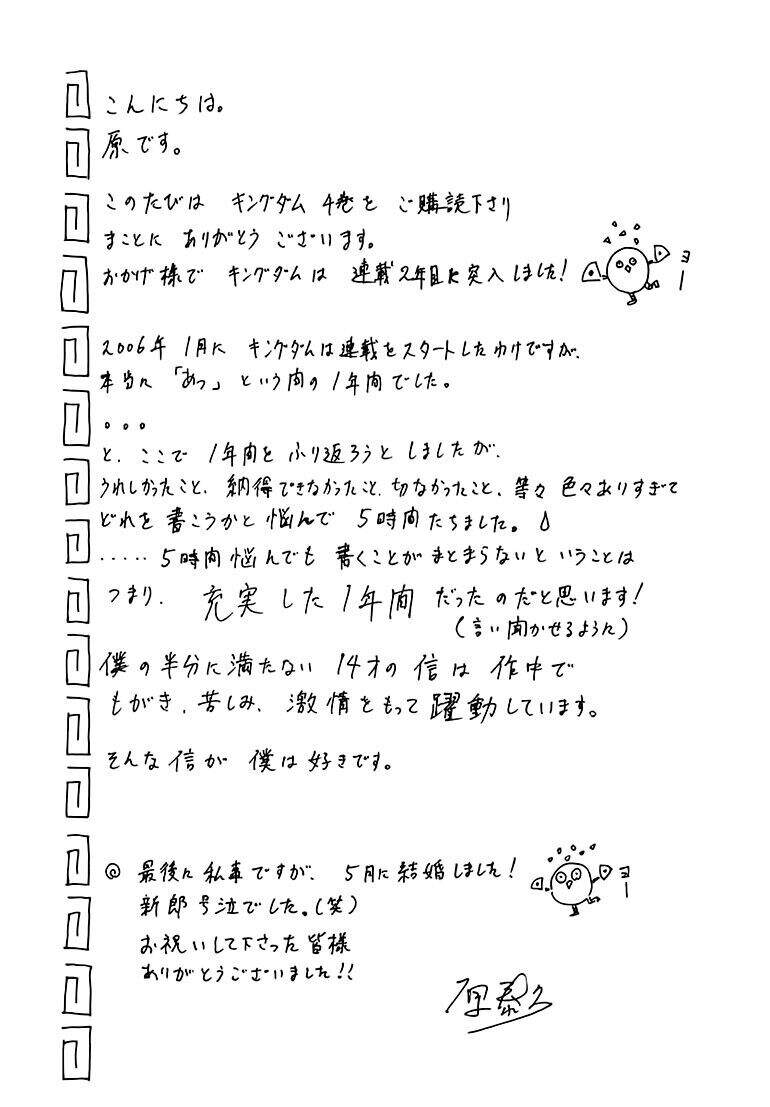 こんにちは。
原です。
このたびは キングダム 4巻を ご購読下さり
まことに ありがとう ございます。
おかげ様で キングダムは 連載2年目に突入しました！
ヨー
2006年 1月に キングダムは連載をスタートしたわけですが、
本当に 「あっ」という間の 1年間でした。
。。。
と、ここで 1年間を ふり返ろうと しましたが、
うれしかったこと、納得できなかったこと、切なかったこと、等々 色々ありすぎて
どれを 書こうかと 悩んで 5時間たちました。
・・・・・5時間悩んでも 書くことが まとまらないと いうことは
つまり、 充実した1年間 だったのだと思います！
（言い聞かせるように）
僕の半分に満たない 14才の 信は 作中で
もがき、苦しみ、激情をもって 躍動しています。
そんな 信が 僕は 好きです。
◎ 最後に 私事ですが、 5月に結婚しました！
ヨー
新郎号泣でした。（笑）
お祝いして下さった皆様
ありがとうございました!!
原泰久